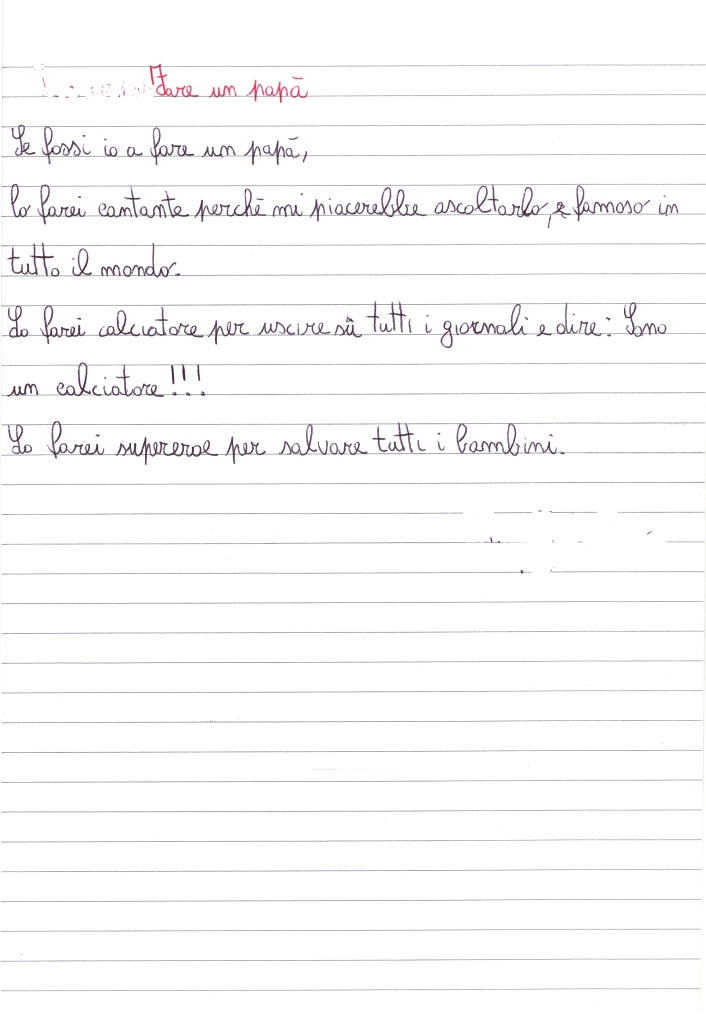 Fare un papā
Se fossi io a fare un papā,
lo farei cantante perchē mi piacerebbe ascoltarlo, e famoso in
tutto il mondo.
Lo farei calciatore per uscire sū tutti i giornali e dire: Sono
un calciatore!!!
Lo farei supereroe per salvare tutti i bambini.